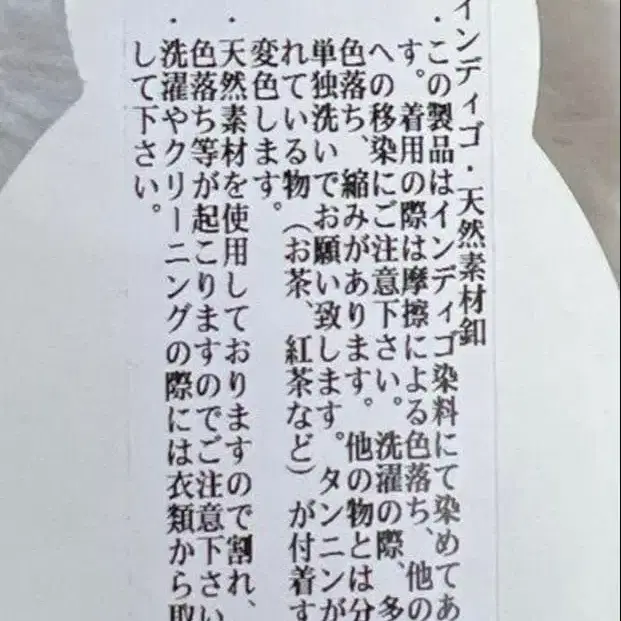 インディゴ・天然素材釦
・この製品はインディゴ染料にて染めてあ
す。着用の際は摩擦による色落ち、他の
への移染にご注意下さい。洗濯の際、多
色落ち、縮みがあります。他の物とは分
単独洗いでお願い致します。タンニンが
れている物（お茶、紅茶など）が付着す
変色します。
・天然素材を使用しておりますので割れ、
色落ち等が起こりますのでご注意下さい
・洗濯やクリーニングの際には衣類から取
して下さい。